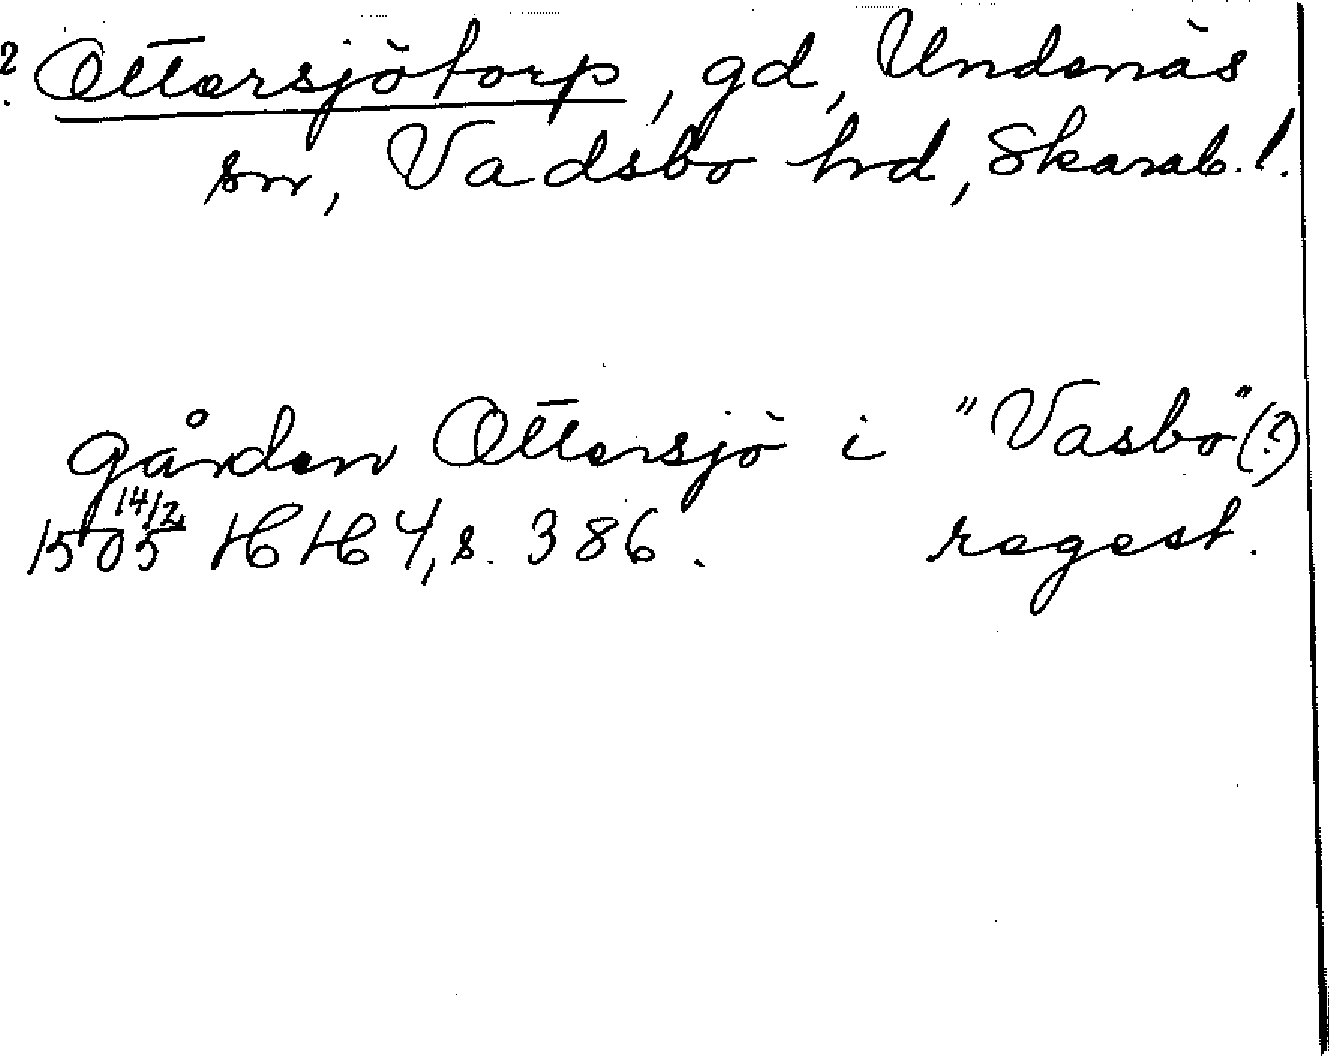 ? Ottersjötorp, gd, Undenäs
sn, Vadsbo hd, Skarab. l.
gården Ottersjö i "Vasbo" (?)
1505 14/2 HH 4, s. 386. regest.